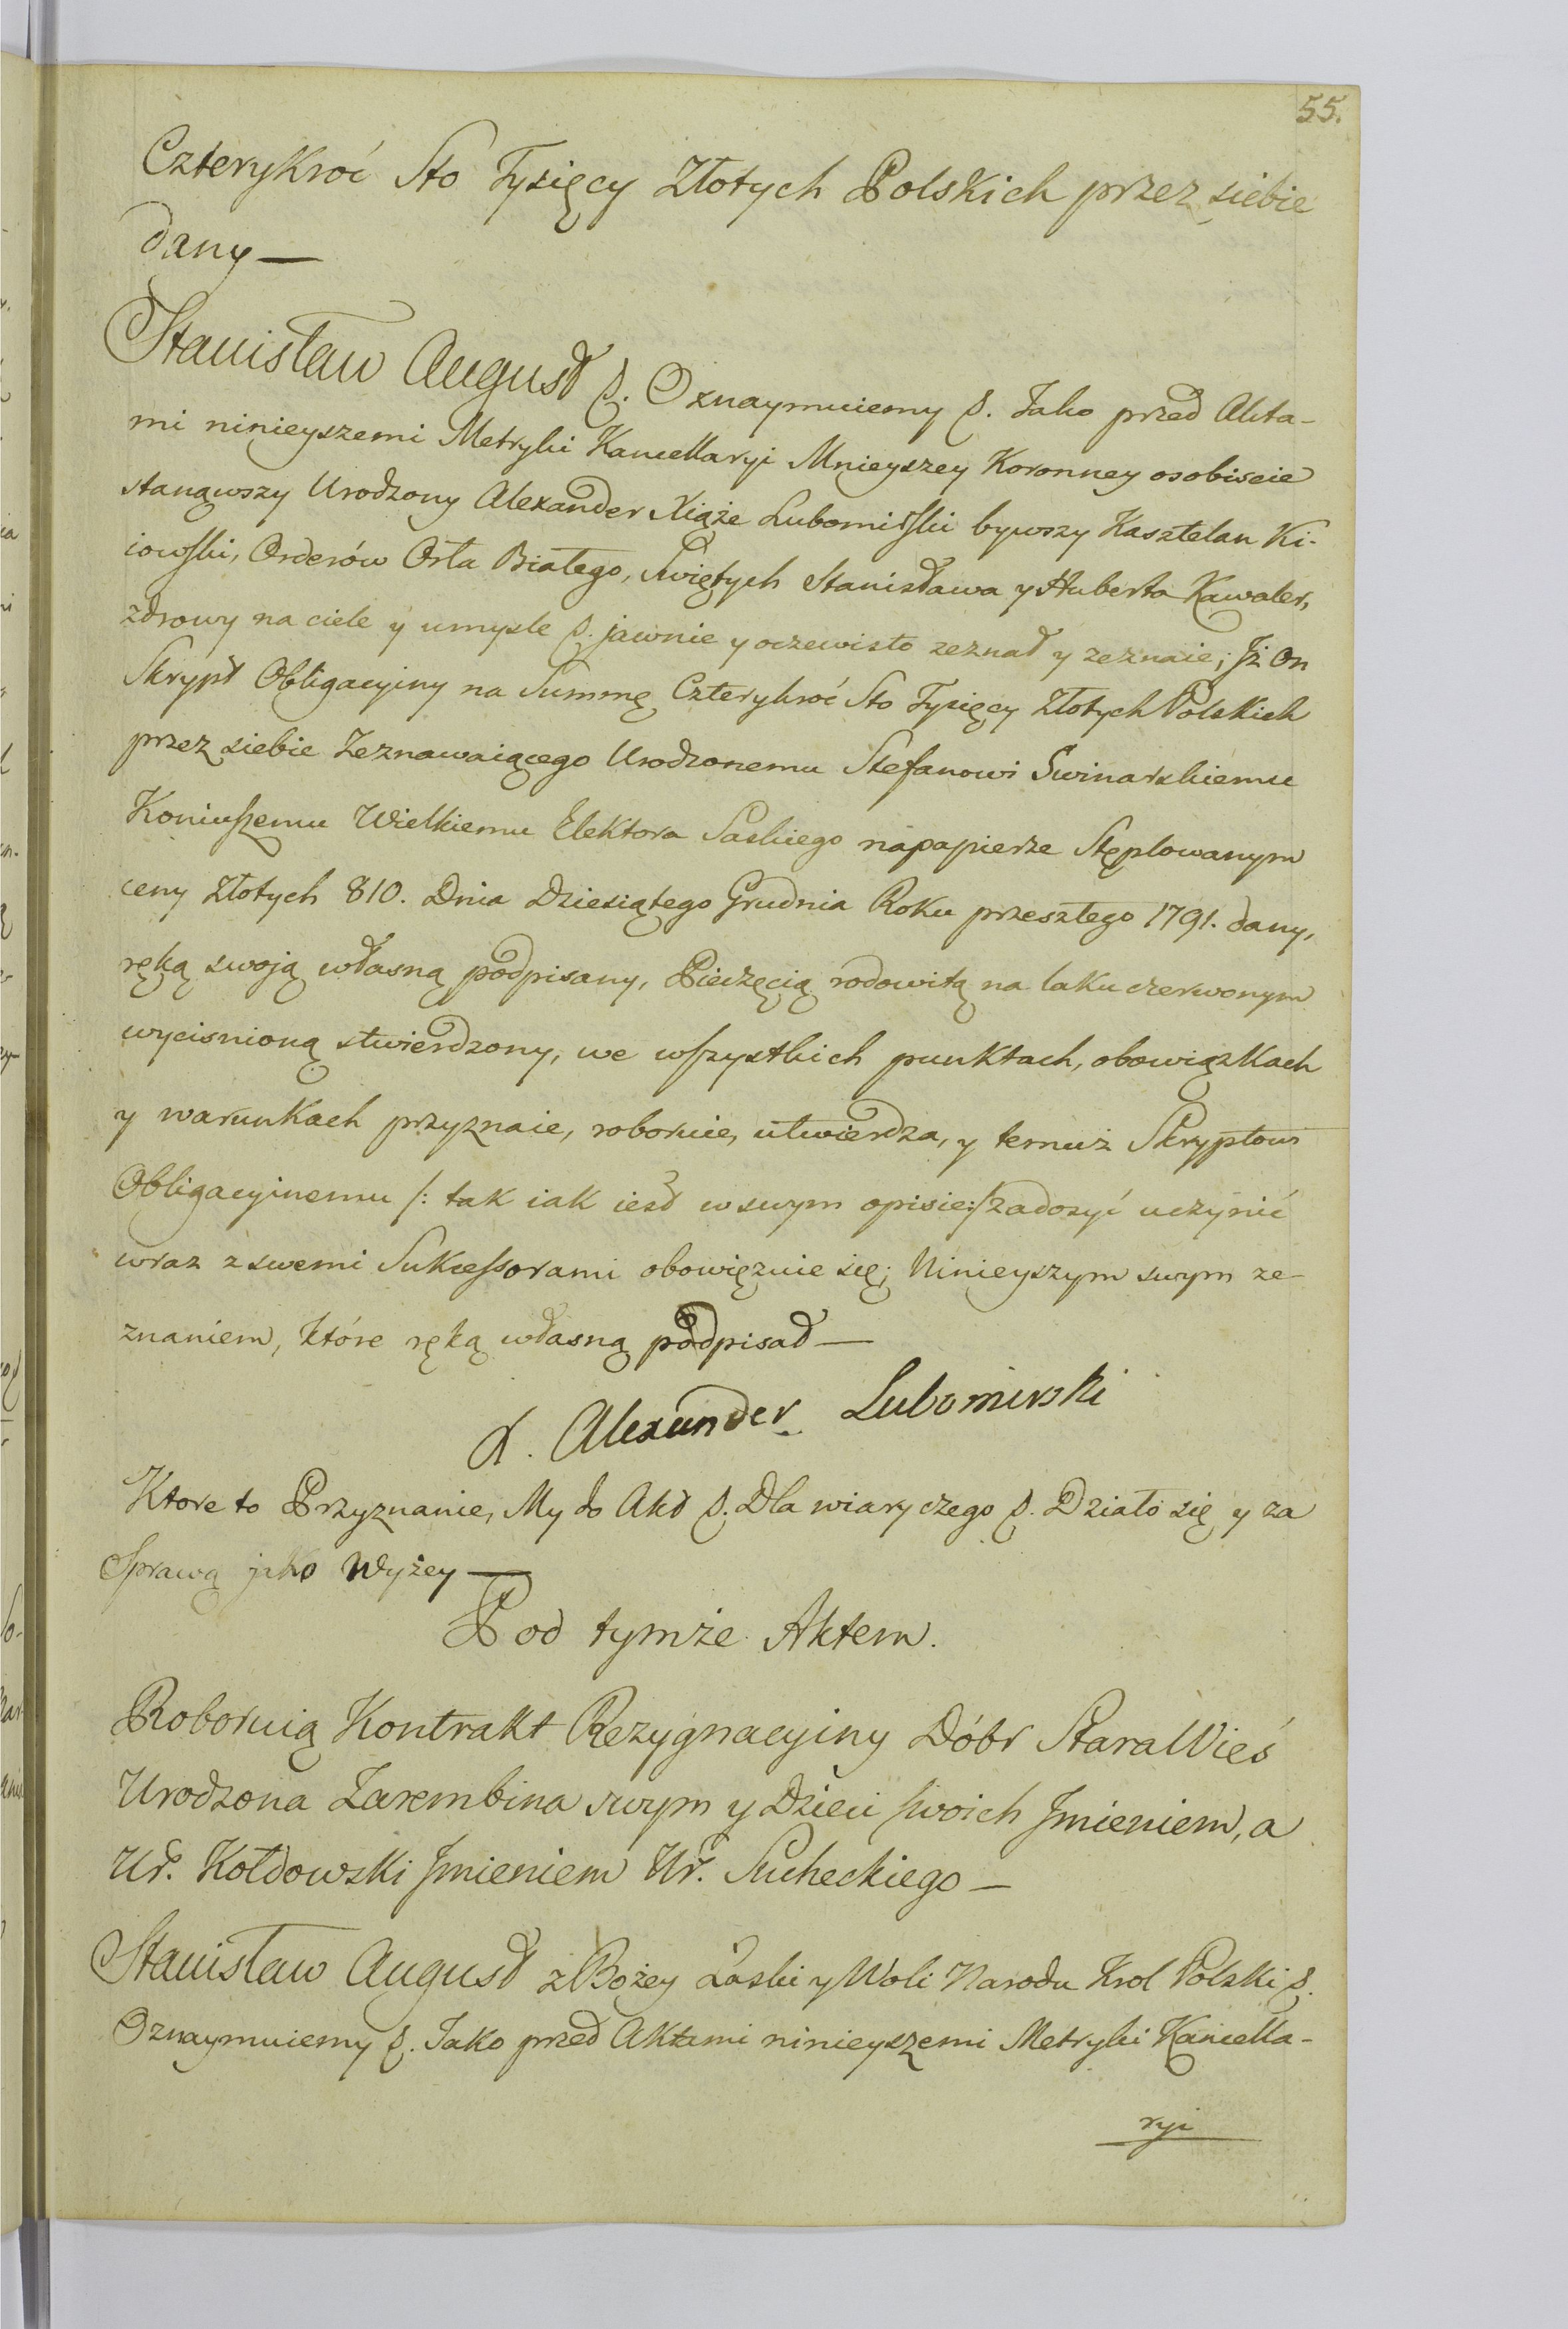 55.
Czterykroć Sto Tysięcy Złotych Polskich przez siebie
dany —
Stanisław August &. Oznaymuiemy &. Jako przed Akta-
mi ninieyszemi Metryki Kancellaryi Mnieyszey Koronney osobiscie
stanąwszy Urodzony Alexander Xiąże Lubomirski bywszy Kasztelan Ki-
iowski, Orderów Orła Białego, Swiętych Stanisława y Huberta Kawaler,
zdrowy na ciele y umysle &. jawnie y oczewisto zeznał y zeznaie; Iż On
Skrypt Obligacyiny na Summę Czterykroć Sto Tysięcy Złotych Polskich
przez siebie Zeznawaiącego Urodzonemu Stefanowi Swinarskiemu
Koniuszemu Wielkiemu Elektora Saskiego na papierze Stęplowanym
ceny Złotych 810. Dnia Dziesiątego Grudnia Roku przeszłego 1791. dany,
ręką swoją własną podpisany, Pieczęcią rodowitą na laku czerwonym
wycisnioną stwierdzony, we wszystkich punktach, obowiązkach
y warunkach przyznaie, roboruie, utwierdza, y temuż Skryptowi
Obligacyinemu /: tak iak iest w swym opisie:/ zadosyć uczynić
wraz z swemi Sukcessorami obowięzuie się; Ninieyszym swym ze-
znaniem, które ręką własną podpisał —
X. Alexander Lubomirski
Ktore to Przyznanie, My do Akt &. Dla wiary czego &. Działo się y za
Sprawą jako Wyżey —
Pod tymże Aktem.
Roboruią Kontrakt Rezygnacyiny Dóbr Stara Wieś
Urodzona Zarembina swym y Dzieci swoich Imieniem, a
Ur. Kołdowski Imieniem Ur. Sucheckiego —
Stanisław August z Bożey Łaski y Woli Narodu Krol Polski &.
Oznaymuiemy &. Jako przed Aktami ninieyszemi Metryki Kancella-
ryi